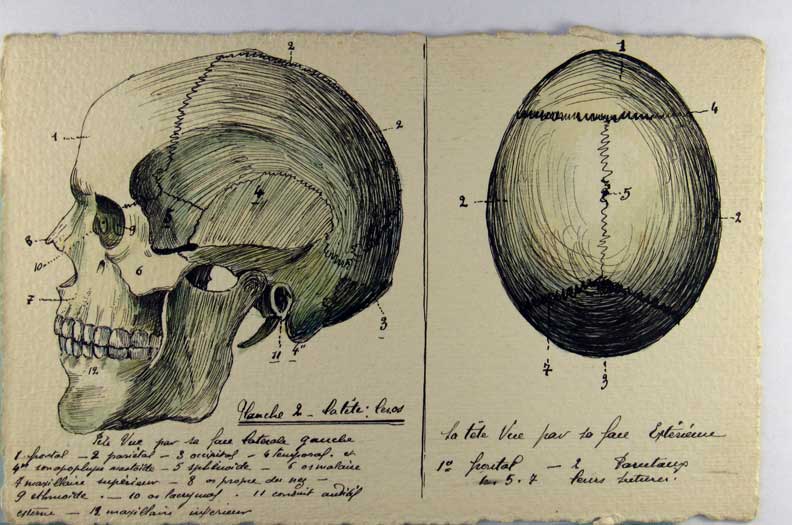 2
1
2
4
5
9
8
10
6
7
12
11
4"
3
Planche 2 - la tête: les os
Tête Vue par sa face latérale gauche
1 frontal - 2 pariétal - 3 occipital - 4 temporal. et
4" son apophyse mastoïde - 5 sphénoïde - 6 os malaire
7 maxillaire supérieur - 8 os propre du nez -
9 ethmoïde. - 10 os lacrymal. 11 conduit auditif
externe - 12 maxillaire inférieur
1
4
5
2
2
7
3
La tête Vue par sa face Extérieure
frontal - 2 Pariétaux
5. 7 leurs sutures.